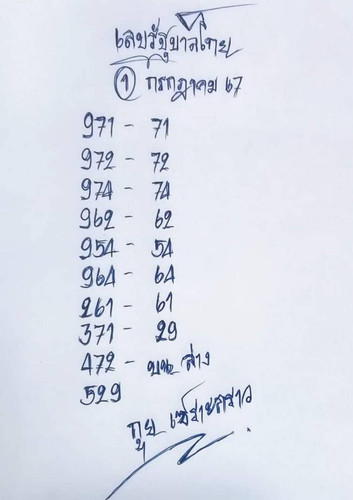 เลขรัฐบาลไทย
1 กรกฎาคม 67
971 - 71
972 - 72
974 - 74
962 - 62
954 - 54
964 - 64
261 - 61
371 - 29
472 - บน ล่าง
529